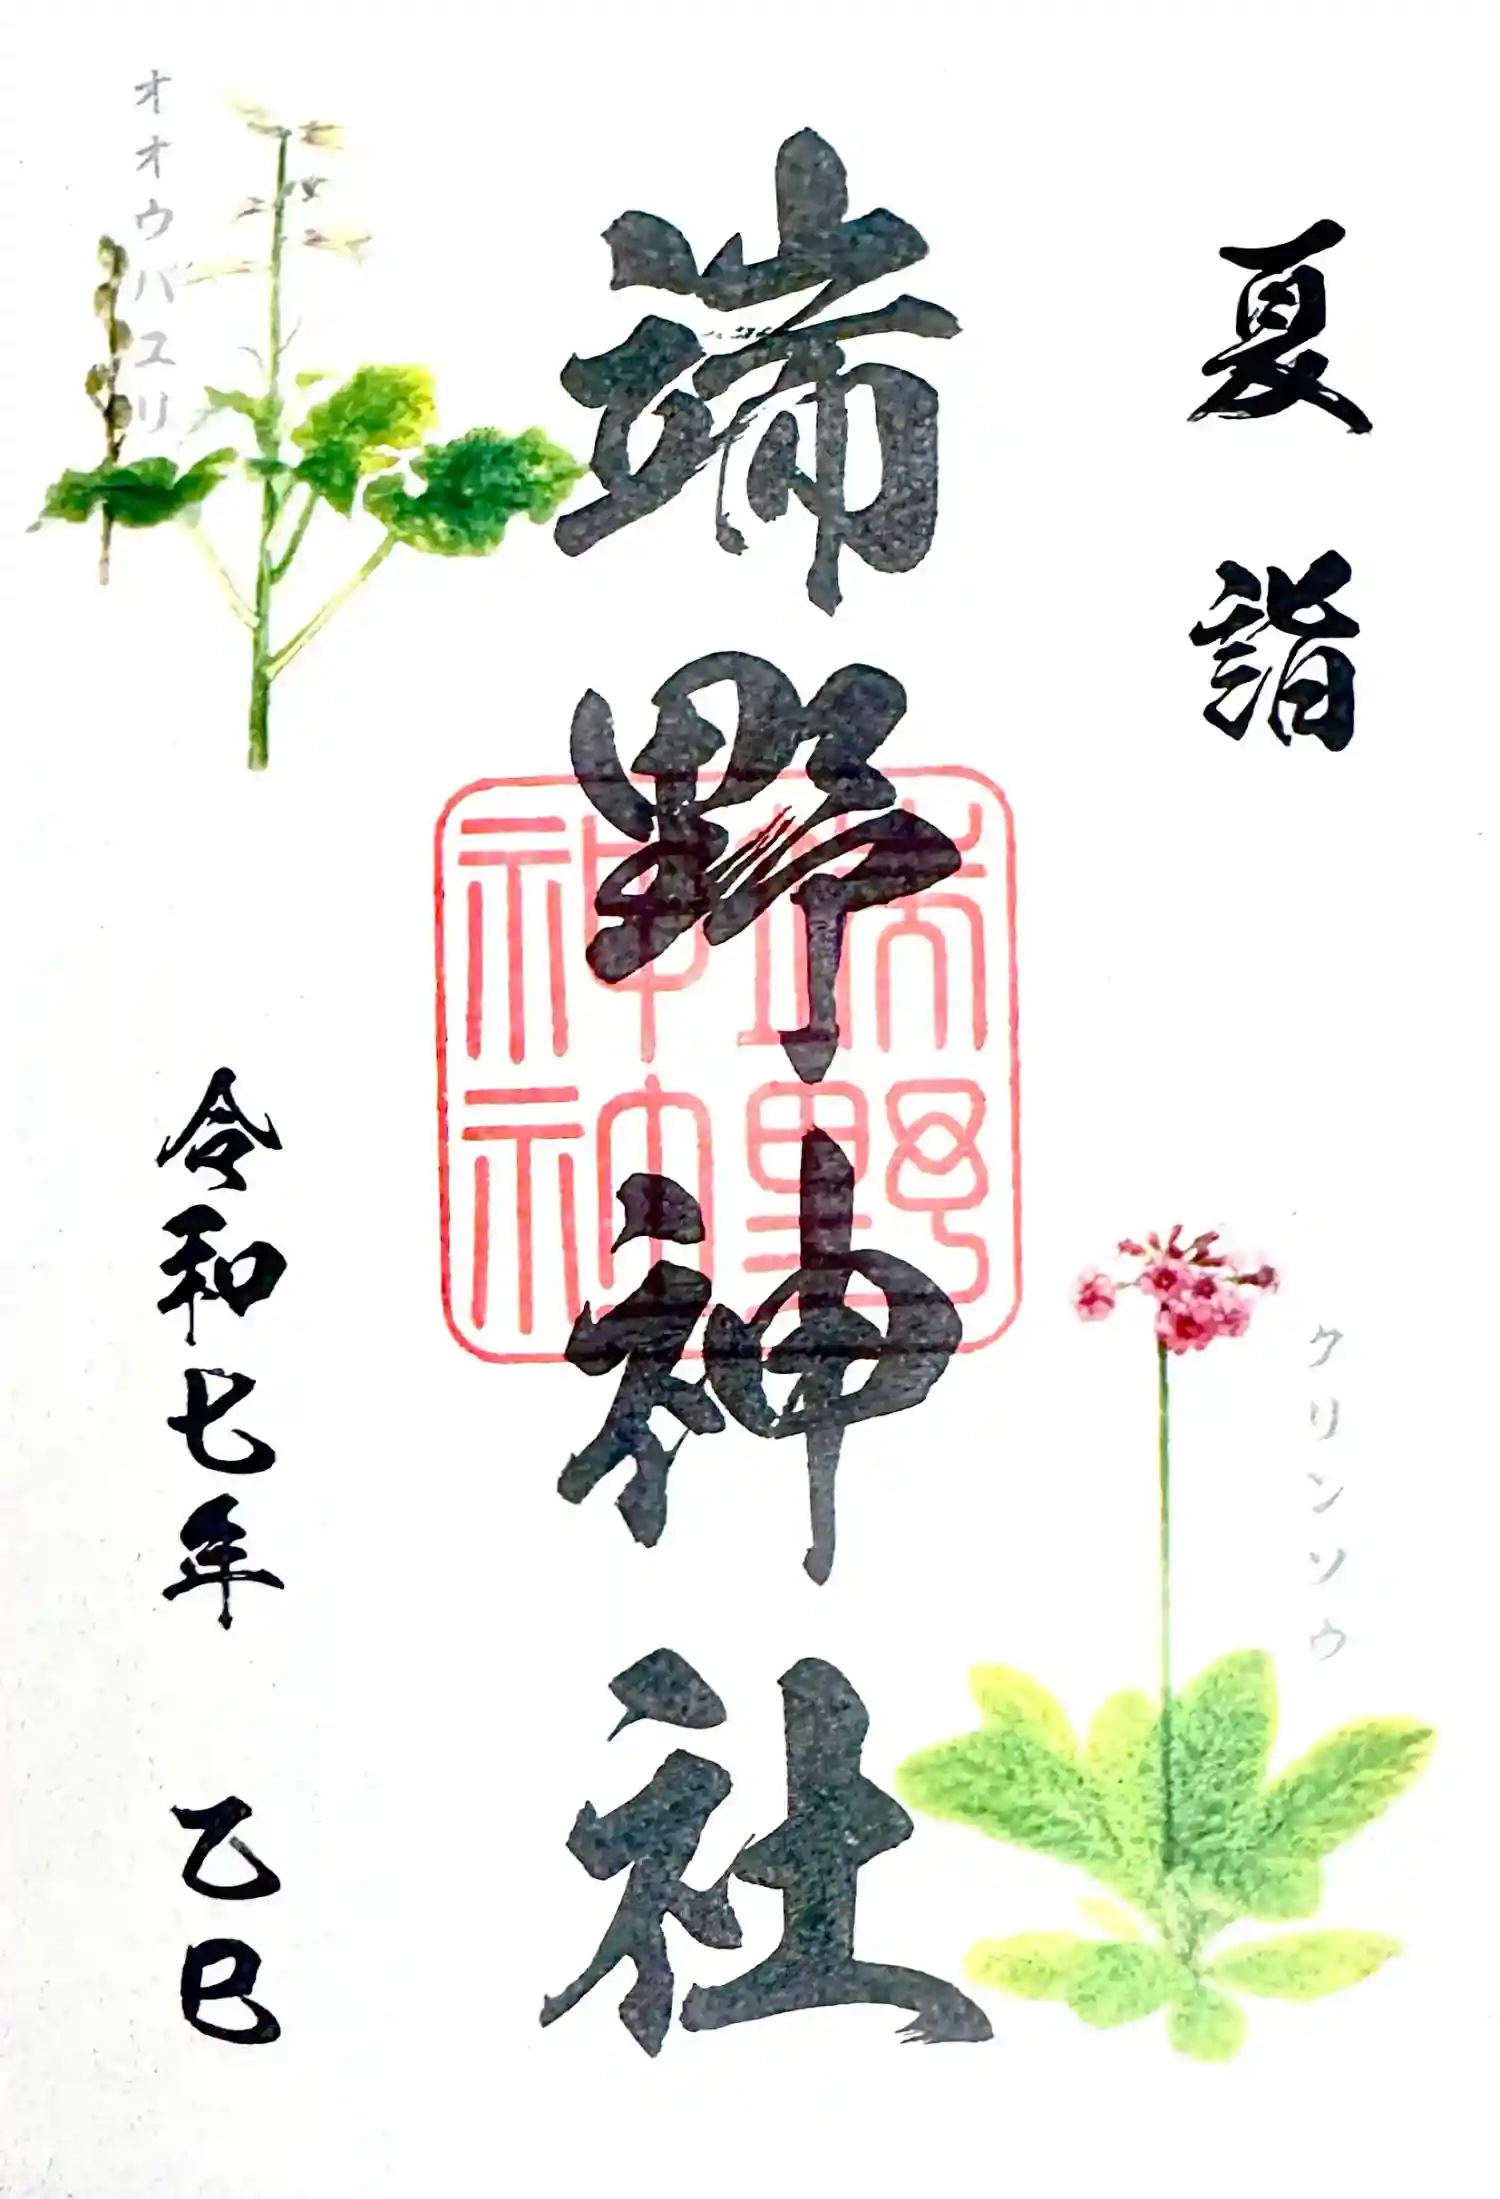 夏詣
端野神社
端野
神社
クリンソウ
オオウバユリ
令和七年 乙巳